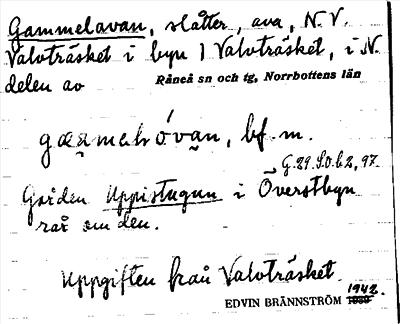 Gammelavan, slåtter, ava, N.V.
Valvträsket i byn Valvträsket, i N.
delen av Råneå sn och tg, Norrbottens län
bf. m.
G.29.S.O.b.2, 97.
Gården Uppistugun i Överstbyn
rår om den.
Uppgiften från Valvträsket.
EDVIN BRÄNNSTRÖM 1942.